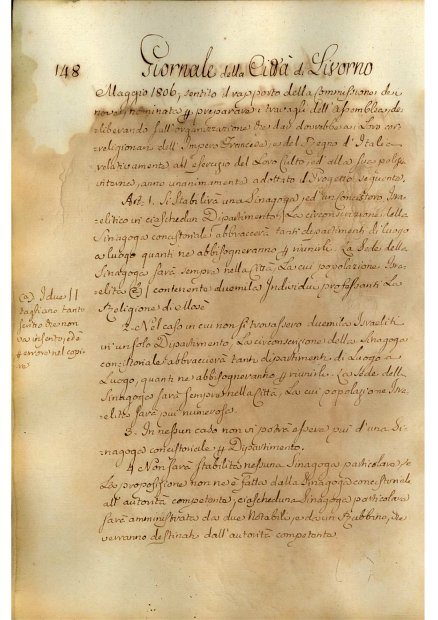 148
Giornale della Città di Livorno
Maggio 1806, sentito il rapporto della Commissione de
nove, nominata p preparare i travagli dell'Assemblea, de-
liberando sull'organizazione che da
religionari dell'Impero Francese, e del Regno d'Italia
relativamente all'esercizio del Loro Culto, ed alla sua polizia
interna, anno unanimamente adottato il Progetto seguente.
Art: 1. Si Stabilirà una Sinagoga, ed un Concistoro Isra-
-elitico in ciaschedun Dipartimento. La circonscrizione della
Sinagoga concistoriale abbraccerà tanti departimenti di luogo
a luogo quanti ne abbisogneranno p riunirli. La Sede della
Sinagoga sarà sempre nella Città, La cui popolazione Isra-
elita (a) contenente duemila Individui professanti La
Religione di Mosè
2. Nel caso in cui non si trovassero duemila Israeliti
in un solo Dipartimento, La circonscrizione della Sinagoga
concistoriale abbraccierà tanti dipartimenti di Luogo a
Luogo, quanti ne abbisogneranno p riunirli. La Sede della
Sinagoga sarà sempre nella Città, La cui popolazione Isra-
-elita sarà più numerosa.
3. In nessun caso non vi potrà essere più d'una Si-
nagoga concistoriale p Dipartimento.
4. Non sarà stabilita nessuna Sinagoga particolare, se
La proposizione non ne è fatta dalla Sinagoga concistoriale
all'autorità competente; ciascheduna Sinagoga particolare
sarà amministrata da due Notabili, e da un Rabbino, che
verranno destinati dall'autorità competente
(a) I due ||
tagliano tanto
scritto che non
va inserito, ed è
p errore nel copi-
re